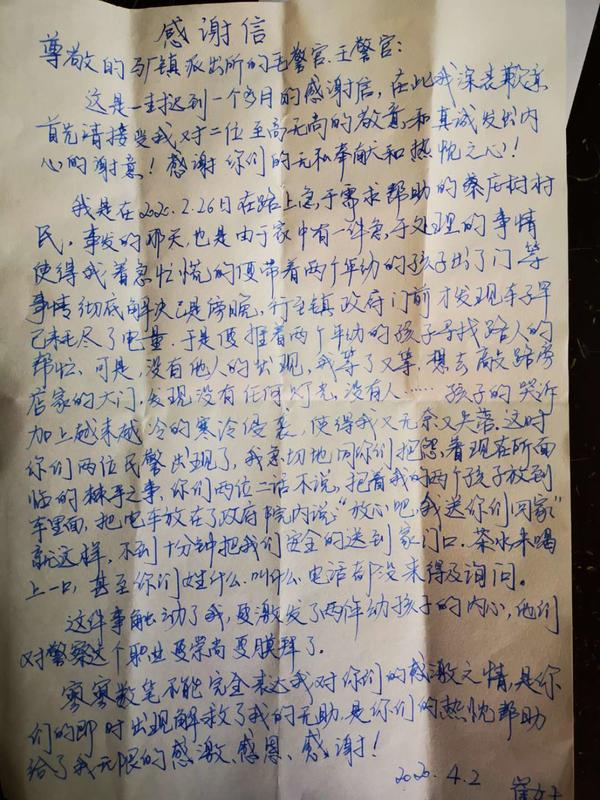 感谢信
尊敬的马厂镇派出所的毛警官.王警官:
这是一封迟到一个多月的感谢信,在此我深表歉意
首先请接受我对二位至高无尚的敬意和真诚发出内
心的谢意!感谢你们的无私奉献和热忱之心!
我是在2020.2.26日在路上急于需求帮助的蔡庄村村
民。事发的那天,也是由于家中有一件急于处理的事情
使得我着急忙慌的便带着两个年幼的孩子出了门等
事情彻底解决已是傍晚,行至镇政府门前才发现车子早
已耗尽了电量.于是便推着两个年幼的孩子寻找路人的
帮忙.可是,没有他人的出现,我等了又等.想去敲路旁
店家的大门,发现没有任何灯光,没有人……孩子的哭诉
加上越来越冷的寒冷侵袭,使得我又无奈又失落.这时
你们两位民警出现了,我急切地向你们抱怨,着现在所面
临的棘手之事,你们两位二话不说,抱着我的两个孩子放到
车里面,把电车放在了政府院内说:"放心吧,我送你们回家"
就这样,不到十分钟把我们安全的送到家门口.茶水未喝
上一口,甚至你们姓什么.叫什么.电话都没来得及询问。
这件事触动了我,更激发了两个年幼孩子的内心,他们
对警察这个职业更崇尚更膜拜了。
寥寥数笔不能完全表达我对你们的感激之情,是你
们的即时出现解救了我的无助.是你们的热忱帮助
给了我无限的感激、感恩、感谢!
2020.4.2